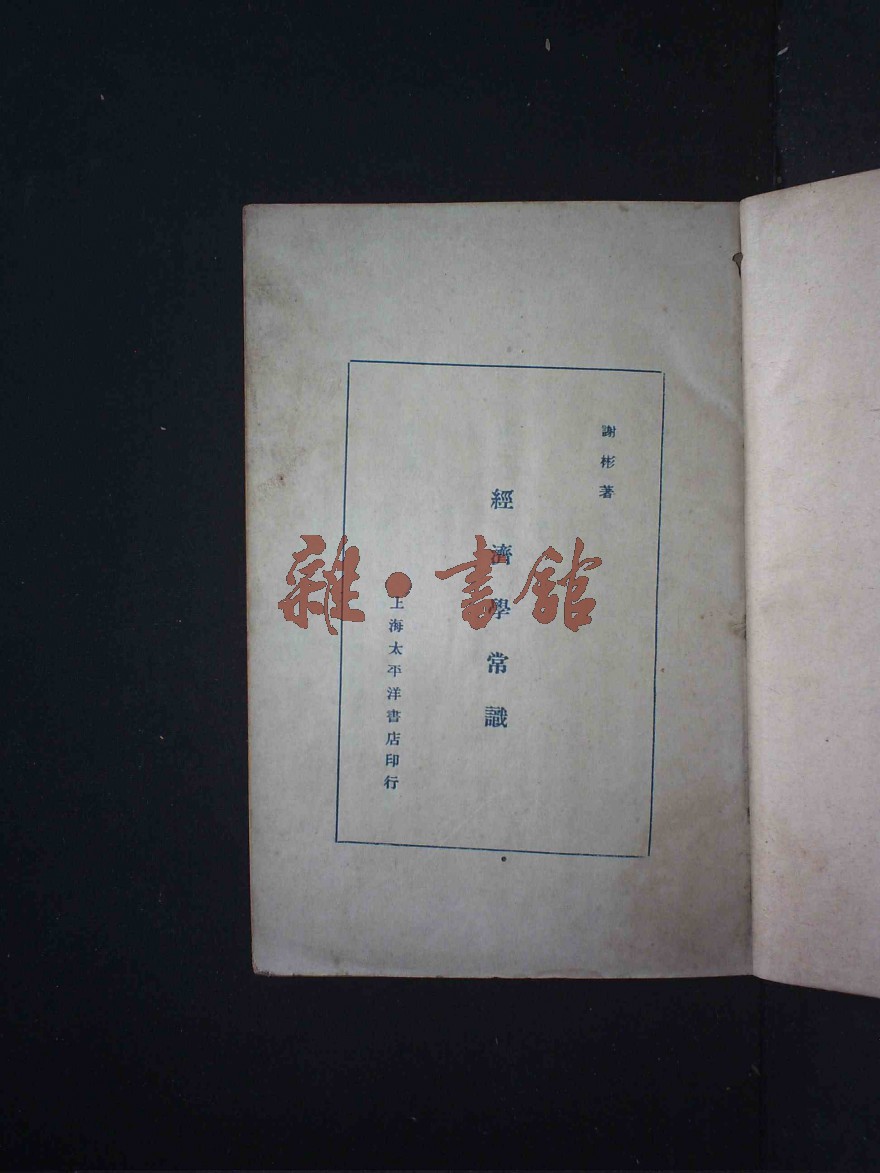 謝彬著
經濟學常識
上海太平洋書店印行
雜·書館